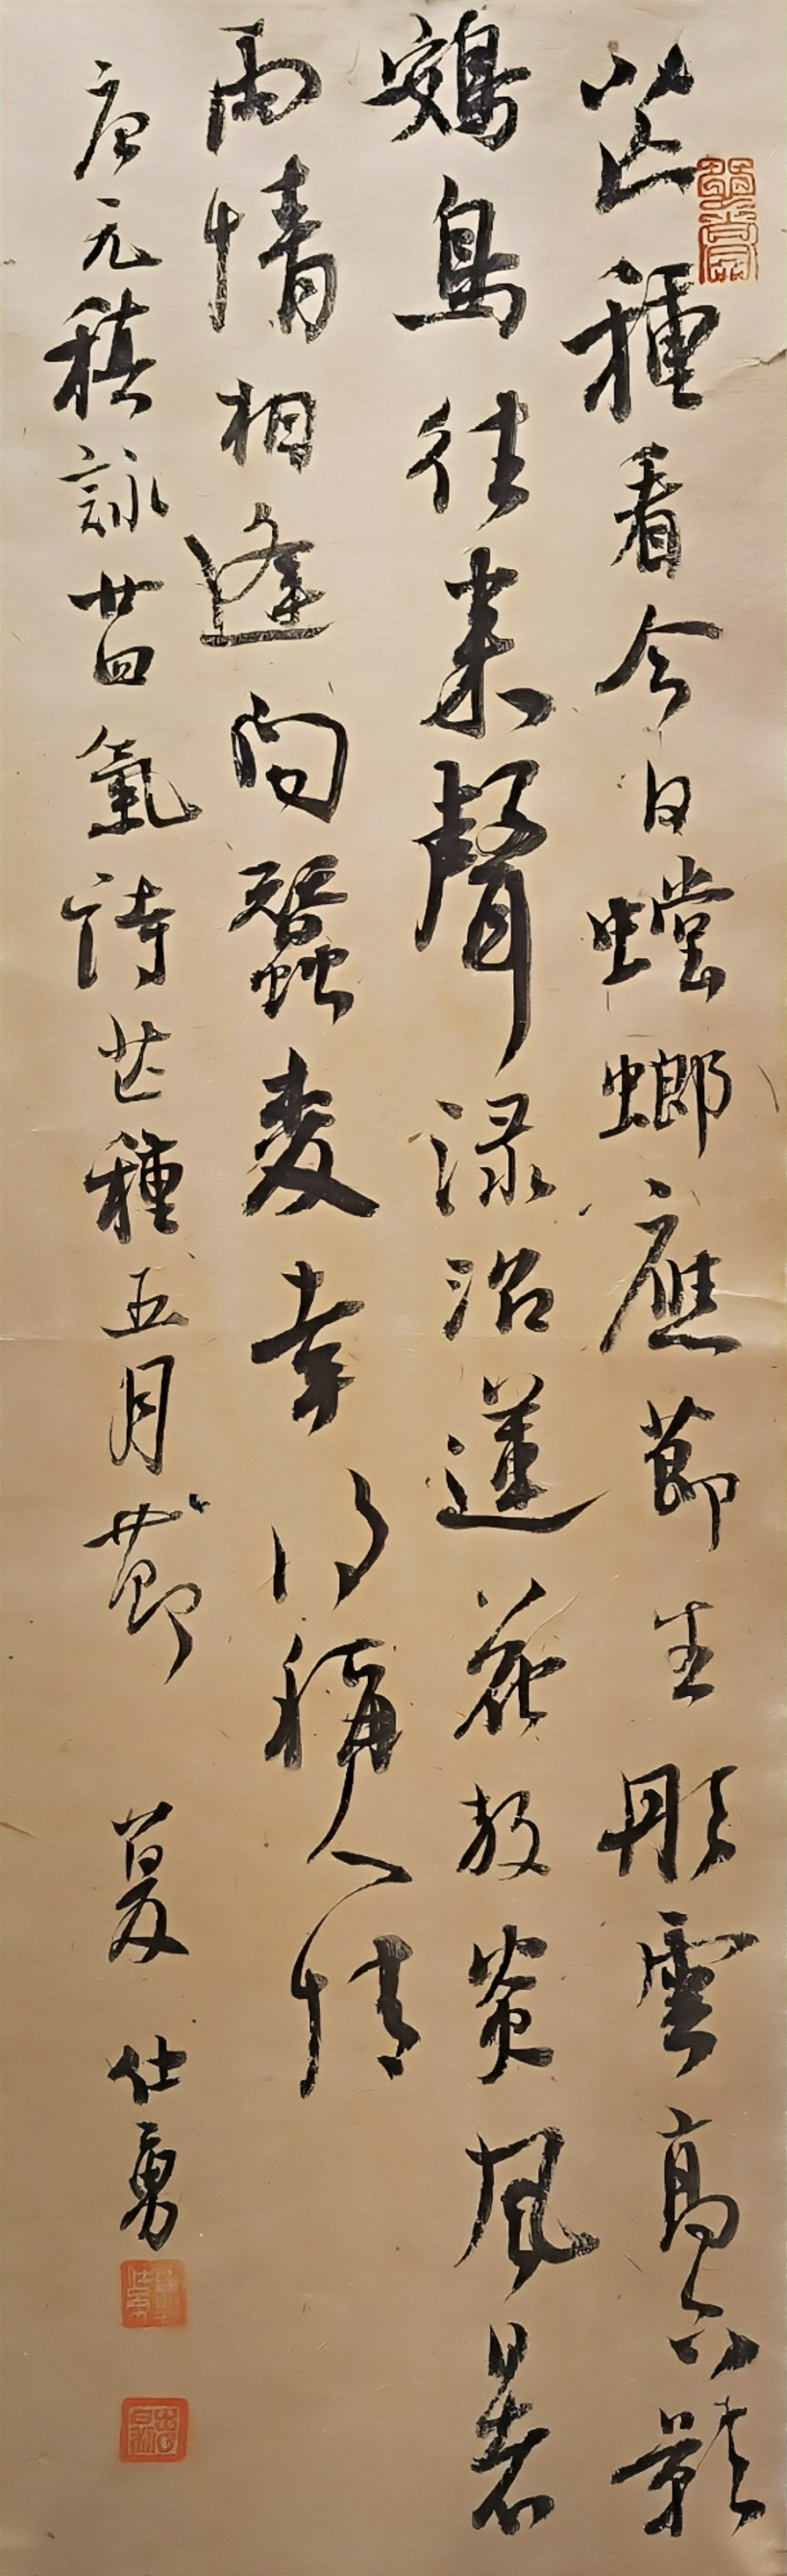 芒種看今日螳螂應節生彤雲高下影
鴳鳥往來聲淥沼蓮花放炎風暑
雨情相逢問蠶麥幸得稱人情
唐元稹詠廿四氣詩芒種五月節 夏仕勇